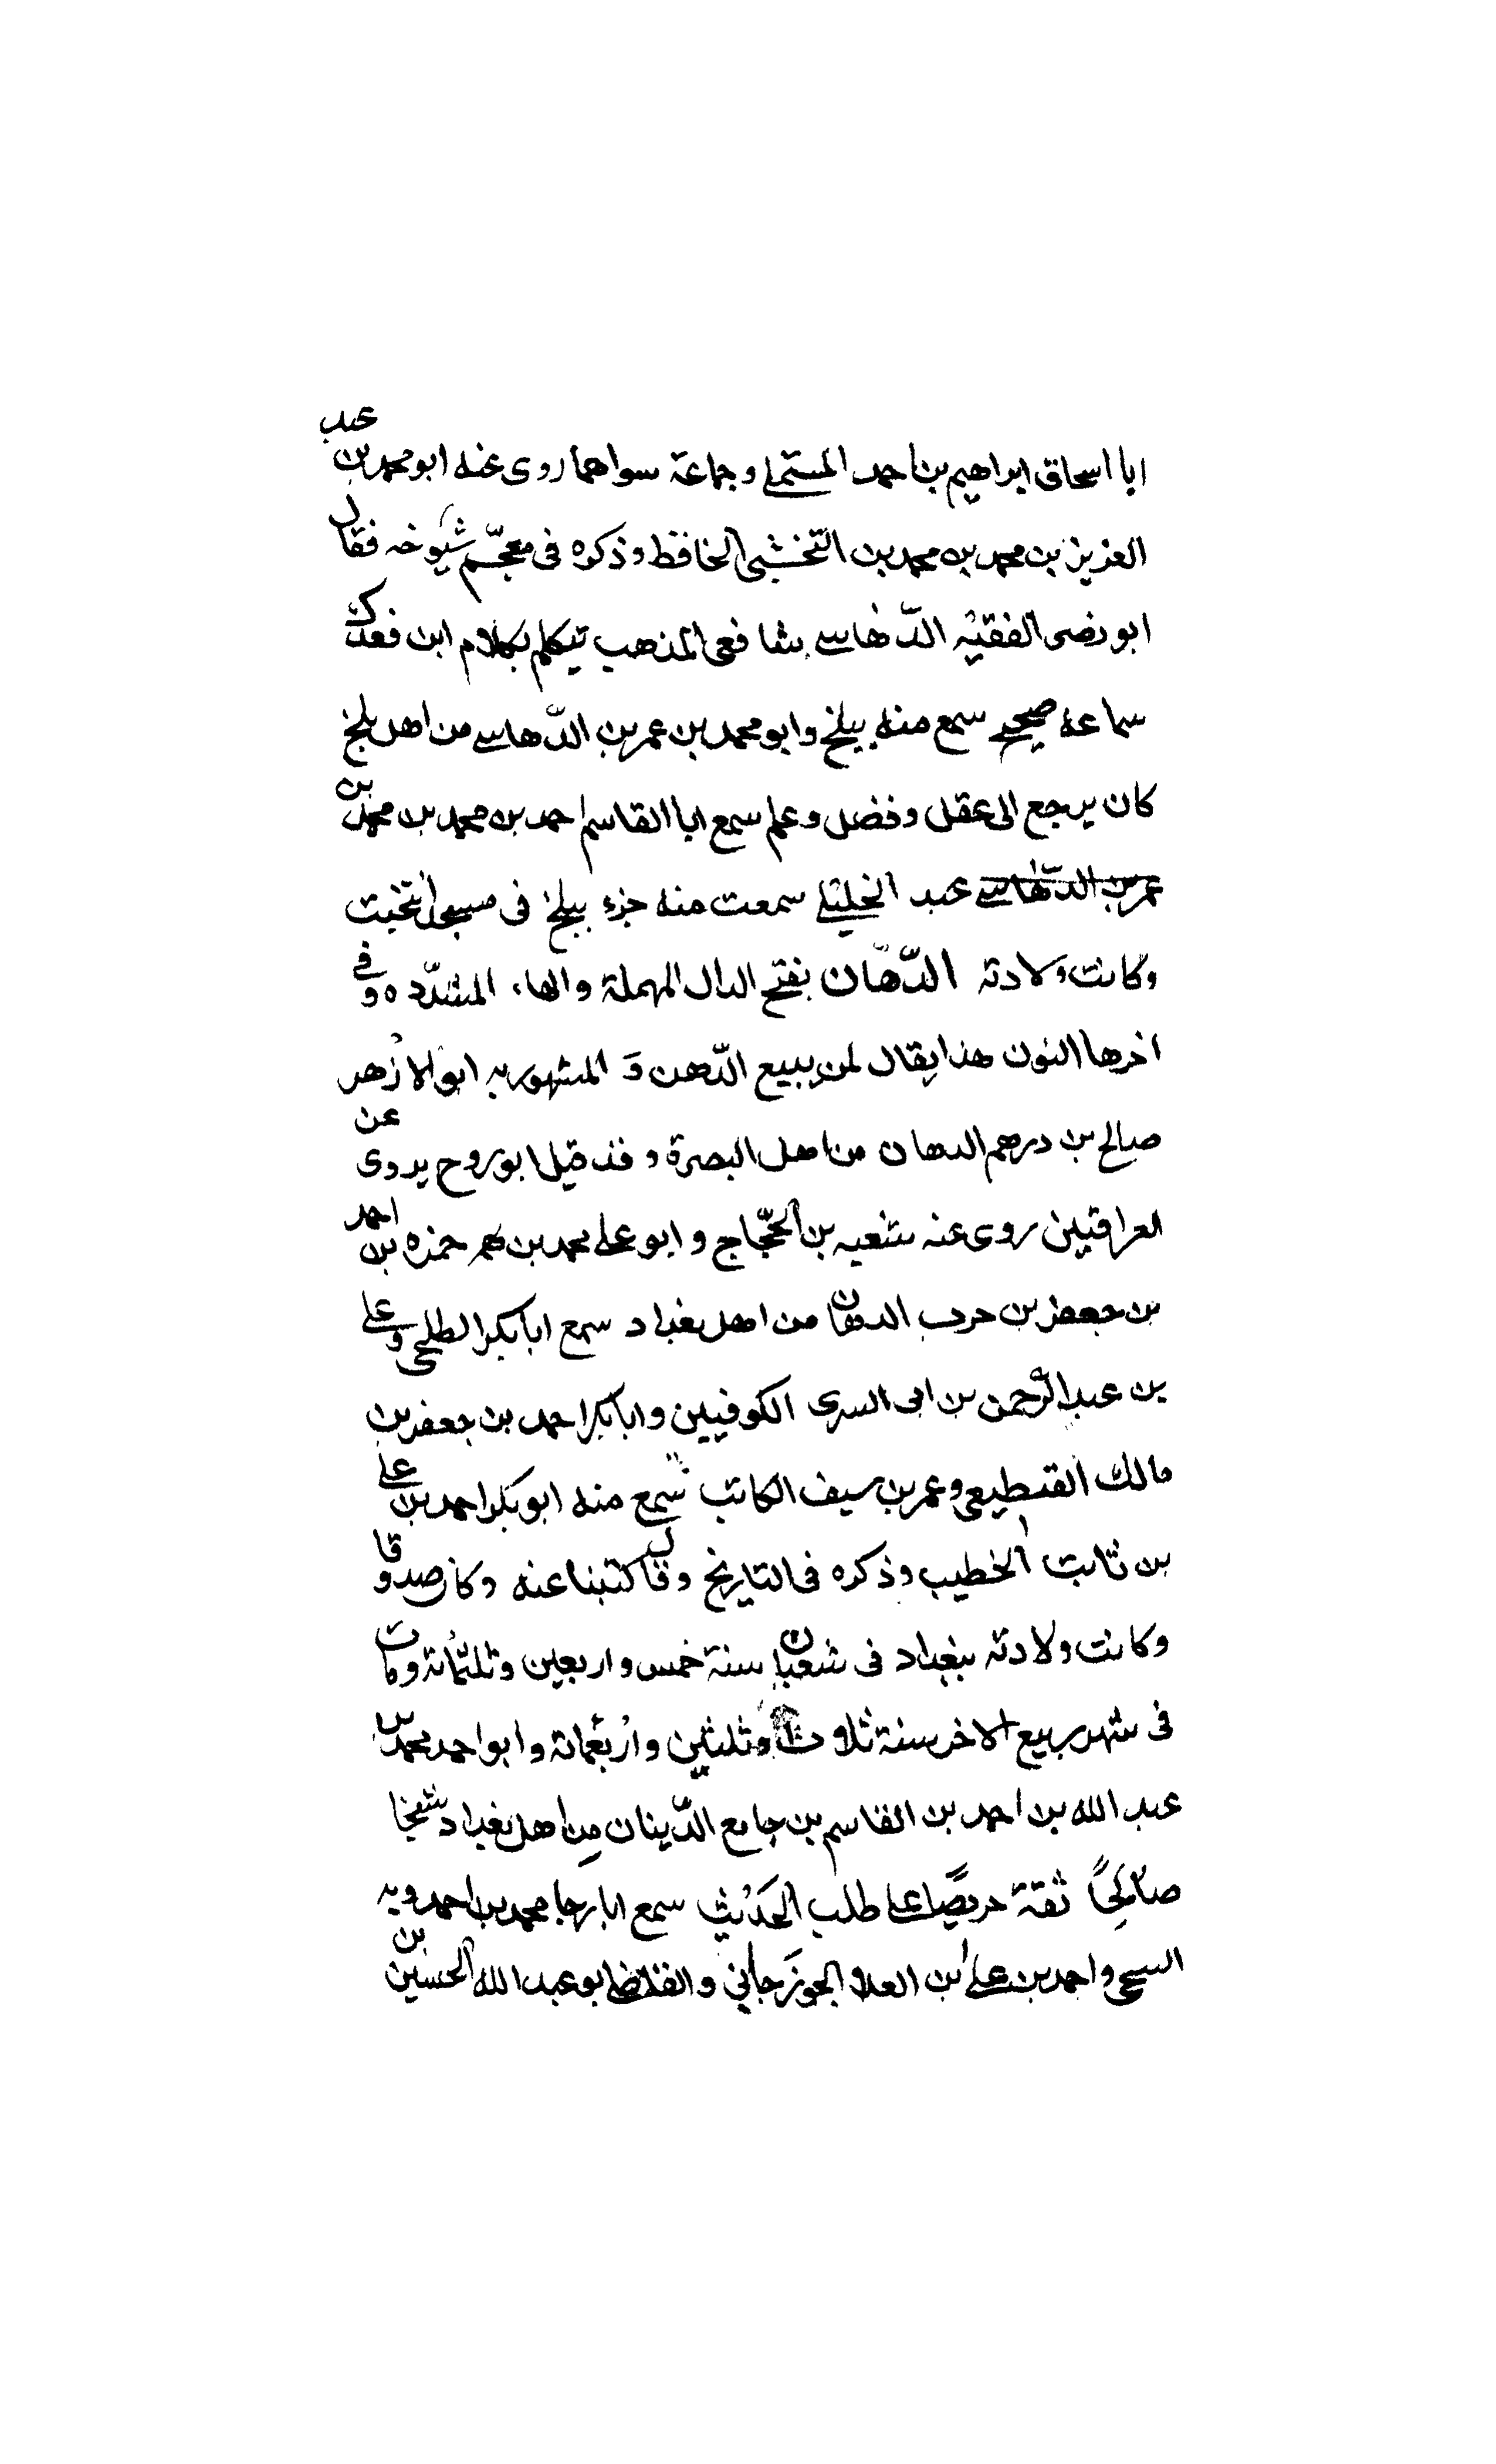 ابا اسحاق ابراهيم بن احمد المستملي وجماعة سواهما روى عنه ابو محمد بن عبد
العزيز بن محمد بن محمد بن النخشبي الحافظ وذكره في معجم شيوخه فقال
ابو نصر الفقيه الدهاسي شافعي المذهب يتكلم بكلام ابن فعدك
سماعه صحيح سمع منه ببلخ وابو محمد بن عمر بن الدهاسي من اهل بلخ
كان يرجع الى عقل وفضل وعلم سمع ابا القاسم احمد بن محمد بن محمد بن
عمر بن الدهاسي عبد الخليلي سمعت منه جزء ببلخ في مسجد
وكانت ولادته الدهان بفتح الدال المهملة والهاء المشدده وفي
اخرها النون هذا يقال لمن يبيع الدهن و المشهور به ابو الازهر
صالح بن درهم الدهان من اهل البصرة وقد قيل ابو روح يروى عن
العراقيين روى عنه شعبه بن الحجاج و ابو على محمد بن حمزه بن احمد
بن جعفر بن حرب الدهان من اهل بغداد سمع ابا بكر الطلحي وعلي
بن عبد الرحمن بن ابى السرى الكوفيين وابا بكر احمد بن جعفر بن
مالك القطيعي وعمر بن سيف الكاتب سمع منه ابو بكر احمد بن علي
بن ثابت الخطيب وذكره في التاريخ وقال كتبنا عنه وكان صدوقا
وكانت ولادته ببغداد في شعبان سنة خمس واربعين وثلثمائة ومات
في شهر ربيع الاخر سنة ثلاث وثلثين واربعمائة وابو احمد محمد بن
عبد الله بن احمد بن القاسم بن جامع الدهان من اهل بغداد شيخا
صالحا ثقة حريصا على طلب الحديث سمع ابا رجا محمد بن احمدويه
السبحي واحمد بن علي بن العلا الجوزجاني والقاضي ابو عبد الله الحسين بن